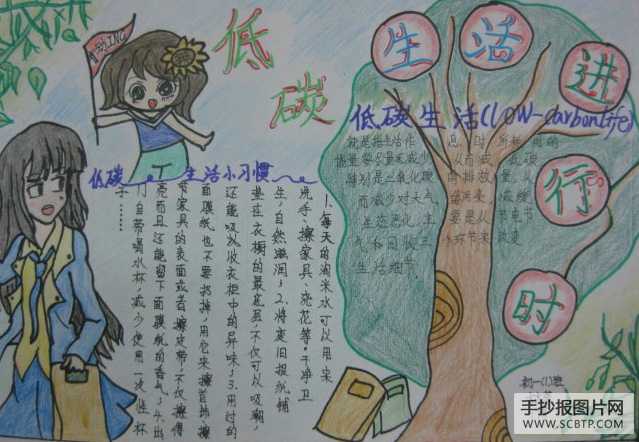 低
碳
生活进行时
低碳生活(low-carbonlife)
就是指生活作息时所耗用的
能量要尽量减少,从而减低碳,
特别是二氧化碳的排放量,从
而减少对大气
生态恶化,主要是从节电节
气和回收三个环节来改变
生活细节。
低碳生活小习惯
1.每天的淘米水可以用来
洗手、擦家具、浇花等,干净卫
生,自然滋润;2.将废旧报纸铺
垫在衣橱的最底层,不仅可以吸潮,
还能吸收衣柜中的异味;3.用过的
面膜纸也不要扔掉,用它来擦首饰、擦
家具的表面或者擦皮带,不仅擦得
亮而且还能留下面膜纸的香气;4.出
门自带喝水杯,减少使用一次性杯
子……
初一(1)班
手抄报图片网
WWW.SCBTP.COM